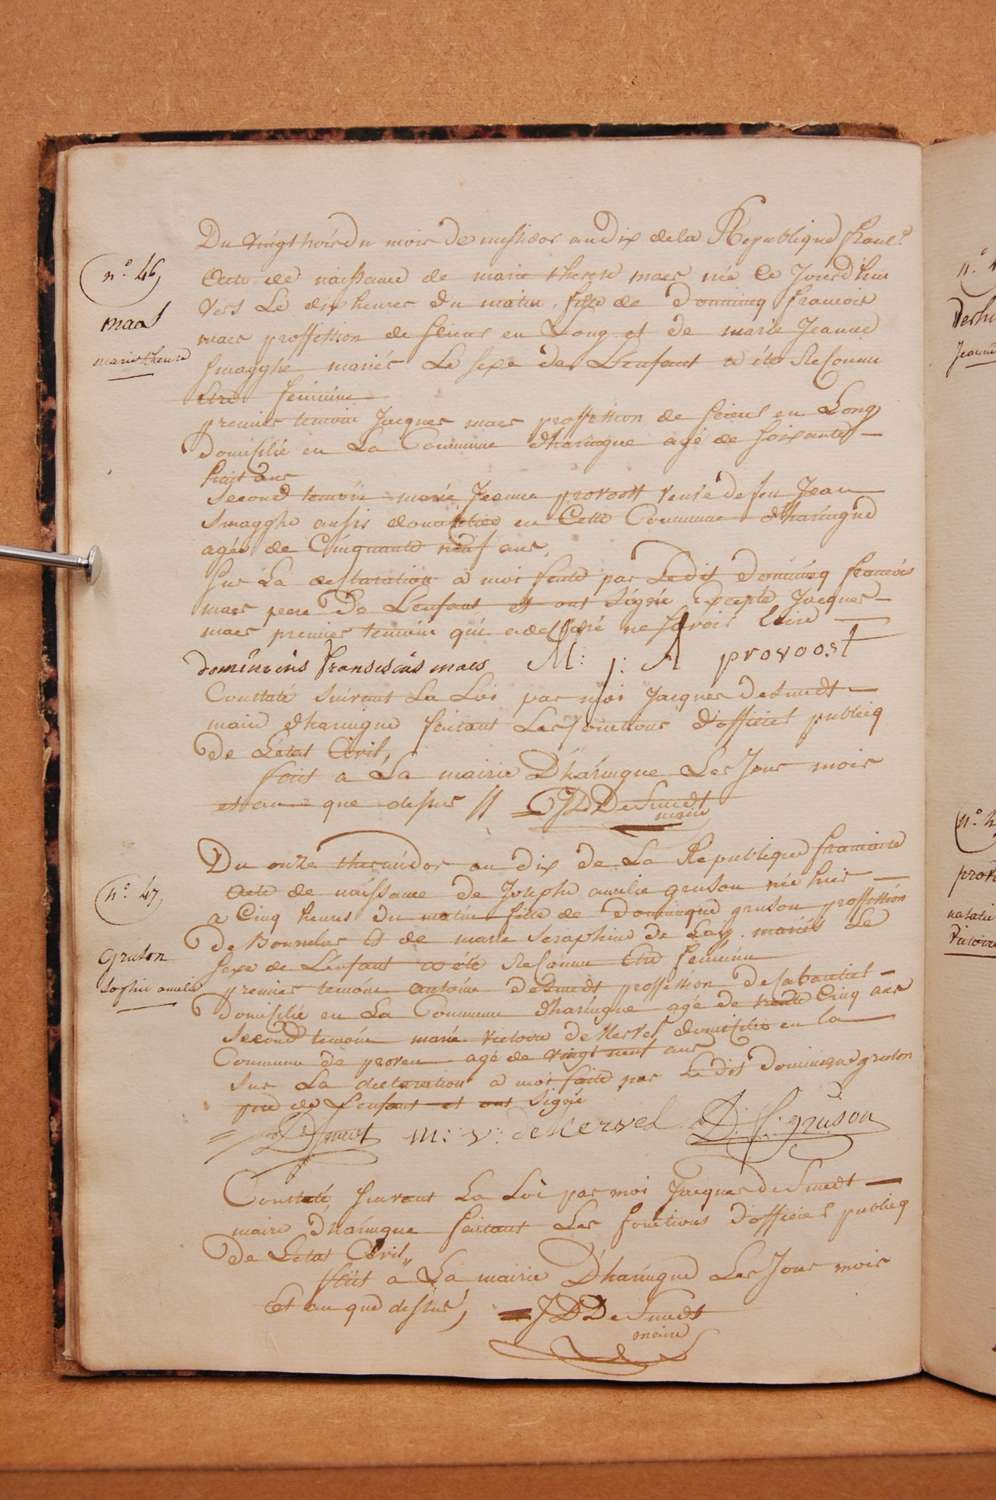 n.° 46
maes
marie therese
Du vingt troisdu mois de messidor an dix de la Republique
Acte de naissance de marie therese maes née Ce Jourdhui
vers Le dix heures Du matin, fille de Dominicq francois
maes proffession de scieur en Long et de marie Jeanne
Smagghe mariés Le sexe de L'enfant a été ReConnu
etre feminine
premier temoin Jacques maes proffession de scieur en Long
Domisilié en La Commune d'haringue agé de soixante
huit ans
second temoin marie Jeanne provoost veuve de feu Jean
Smagghe aussi domicilieé en Cette Commune d'haringue
agée de Cinquante neuf ans,
sur La declaration a moi faite par Ledit Dominicq francois
maes pere De L'enfant et ont signé excepte Jacques
maes premier temoin qui adeclaré ne savoir Ecrire
dominicus Fransiscus maes M: j: A provoost
Constaté suivant La Loi par moi Jacques DeSmedt
maire d'haringue faisant Les fonctions d'officier publicq
De L'etat Civil,
fait a La mairie D'haringue Les Jour mois
et an que dessus // JDDeSmedt
maire
n.° 47
gruson
sophie amelie
Du onze thermidor an dix de La Republique francaise
Acte de naissance de Josephe amelie gruson née hier
a Cinq heures Du matin fille de Dominique gruson proffession
De et de marie Seraphine de Laÿ mariés Le
sexe de L'enfant a été ReConnu Etre feminine
premier temoin antoine deSmedt proffession de Cabaretier
Domisilié en La Commune d'haringue agé de trente Cinq ans
second temoin marie victoire de Kervel domisilié en la
Commune de proven agé de vingt neuf ans
sur La declaration a moi faite par Le dit Dominique gruson
pere de L'enfant et ont signé
DSmedt m: v: de Kervel D: gruson
Constaté suivant La Loi par moi Jacques de Smedt
maire d'haringue faisant Les fonctions d'officier publicq
De L'etat Civil,
fait a La mairie D'haringue Les Jour mois
Et an que dessus, JDDeSmedt
maire